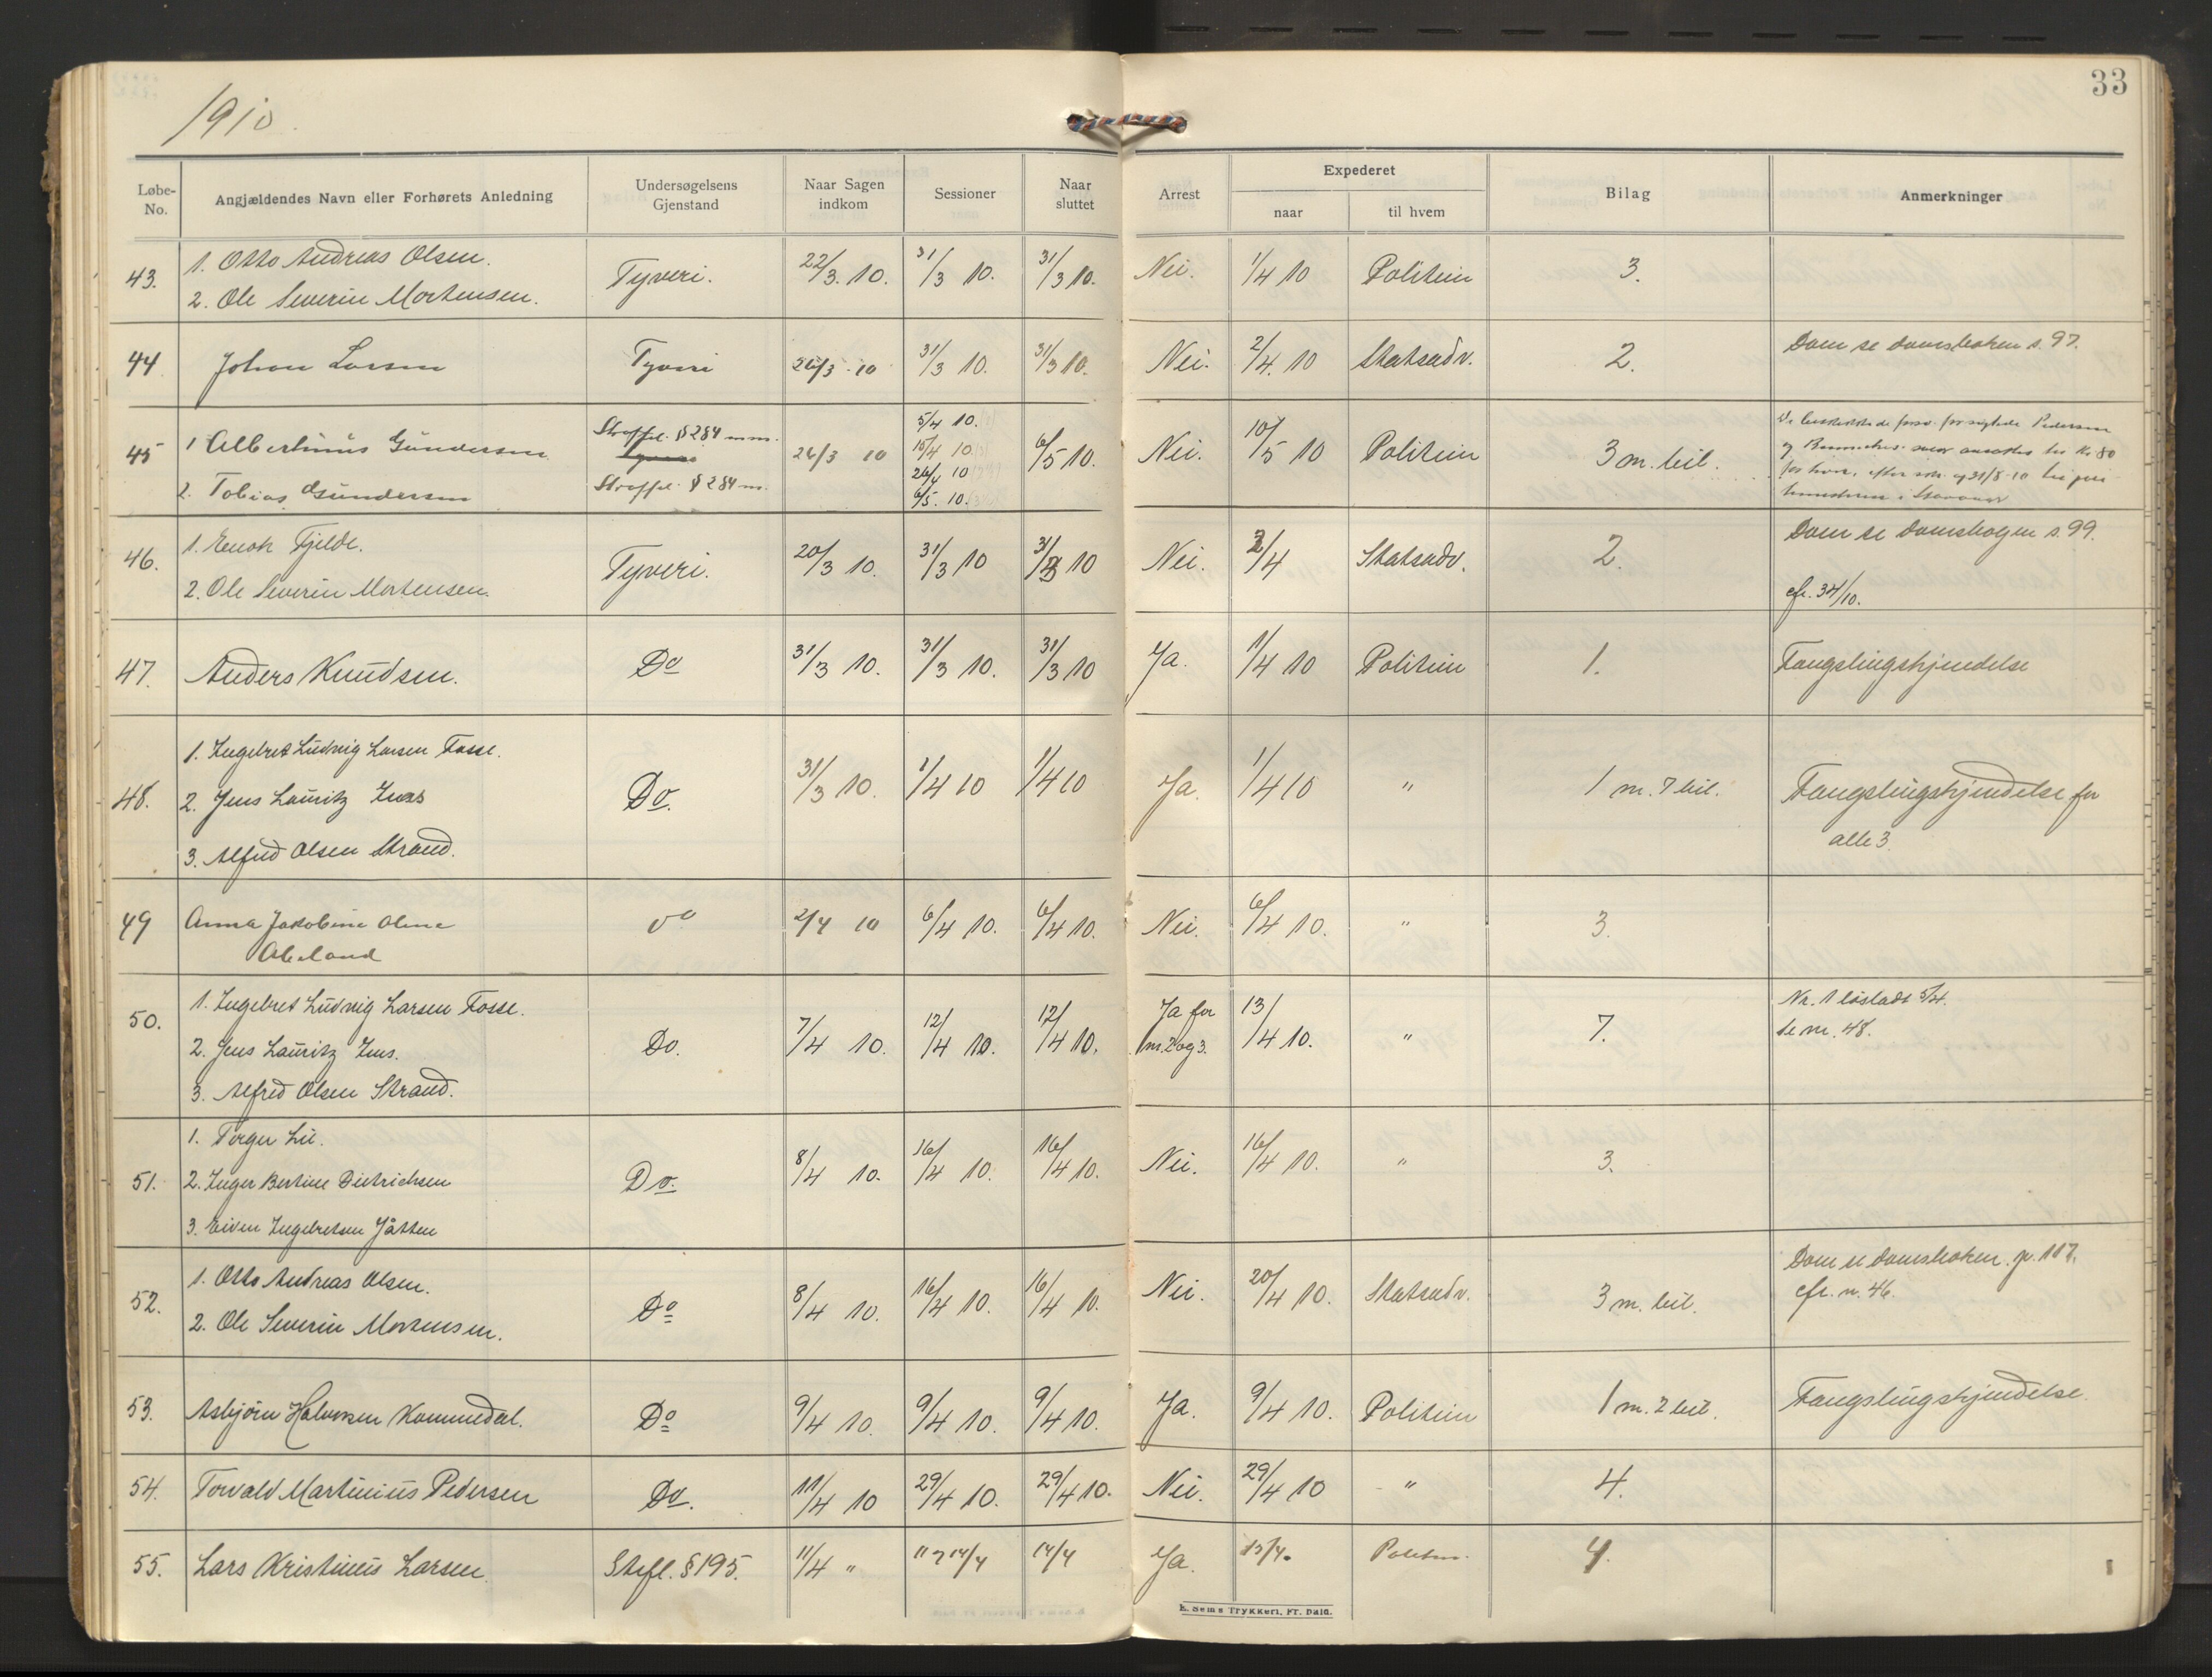 1910.
33
Løbe-No. Angjældendes Navn eller Forhørets Anledning Undersøgelsens Gjenstand Naar Sagen indkom Sessioner Naar sluttet Arrest Expederet Bilag Anmerkninger
naar til hvem
43. 1. Otto Andreas Olsen. Tyveri. 22/3. 10. 31/3 10. 31/3 10. Nei. 1/4 10 Politiein 3.
2. Ole Severin Mortensen.
44 Johan Larsen Tyveri 26/3 10 31/3 10. 31/3 10. Nei. 2/4. 10 Statsadv. 2. Dom se domsboken s. 97.
45 1 Albertinius Gundersen Straffel. § 284 m.m. 26/3 10 5/4 10. 6/5 10. Nei. 10/5 10 Politiein 3 m. bil.
15/4 10
26/4 10
2. Tobias Gundersen Straffel. § 284 m. 6/5. 10.
46. 1. Enok Fjelde. Tyveri. 20/3 10. 31/3 10 31/3 10 Nei. 2/4 Statsadv. 2. Dom se domsbogen s. 99.
2. Ole Severin Mortensen. cfr. 34/10.
47. Anders Knudsen. Do 31/3 10. 31/3 10. 31/3 10 Ja. 1/4 10 Politiein 1. Fængslingskjendelse
48. 1. Ingebret Ludvig Larsen Fosse. Do. 31/3 10. 1/4 10 1/4 10 Ja. 1/4 10 " 1 m. 7 bil. Fængslingskjendelse for
2. Jens Lauritz Jens alle 3.
3. Alfred Olsen Strand.
49 Anna Jakobine Oline Do 2/4 10 6/4 10. 6/4 10. Nei. 6/4 10. " 3.
Abeland
50. 1. Ingebret Ludvig Larsen Fosse. Do. 7/4 10. 12/4 10. 12/4 10. Ja for 13/4 10. " 7. Nr. 1 løsladt 5/4.
2. Jens Lauritz Jens. nr. 2 og 3. Se nr. 48.
3. Alfred Olsen Strand.
51. 1. Torger Lie. Do. 8/4 10. 16/4 10. 16/4 10. Nei. 16/4 10. " 3.
2. Inger Bertine Dietrichsen
3. Eiven Ingebretsen Jåtten
52. 1. Otto Andreas Olsen. Do 8/4 10. 16/4 10. 16/4 10. Nei. 20/4 10. Statsadv. 3 m. bil. Dom se domsboken p. 117.
2. Ole Severin Mortensen. cfr. n. 46.
53. Asbjørn Halvorsen Kommedal. Do 9/4 10. 9/4 10. 9/4 10. Ja. 9/4 10. Politiein 1 m. 2 bil. Fængslingskjendelse.
54. Torvald Martinius Pedersen Do. 11/4 10 29/4 10. 29/4 10. Nei. 29/4 10 " 4.
55. Lars Kristinius Larsen. Strfl. § 195. 11/4 " 11 14/4 14/4 Ja. 15/4. Politiein. 4.
E. Sems Trykkeri, Fr. Hald.